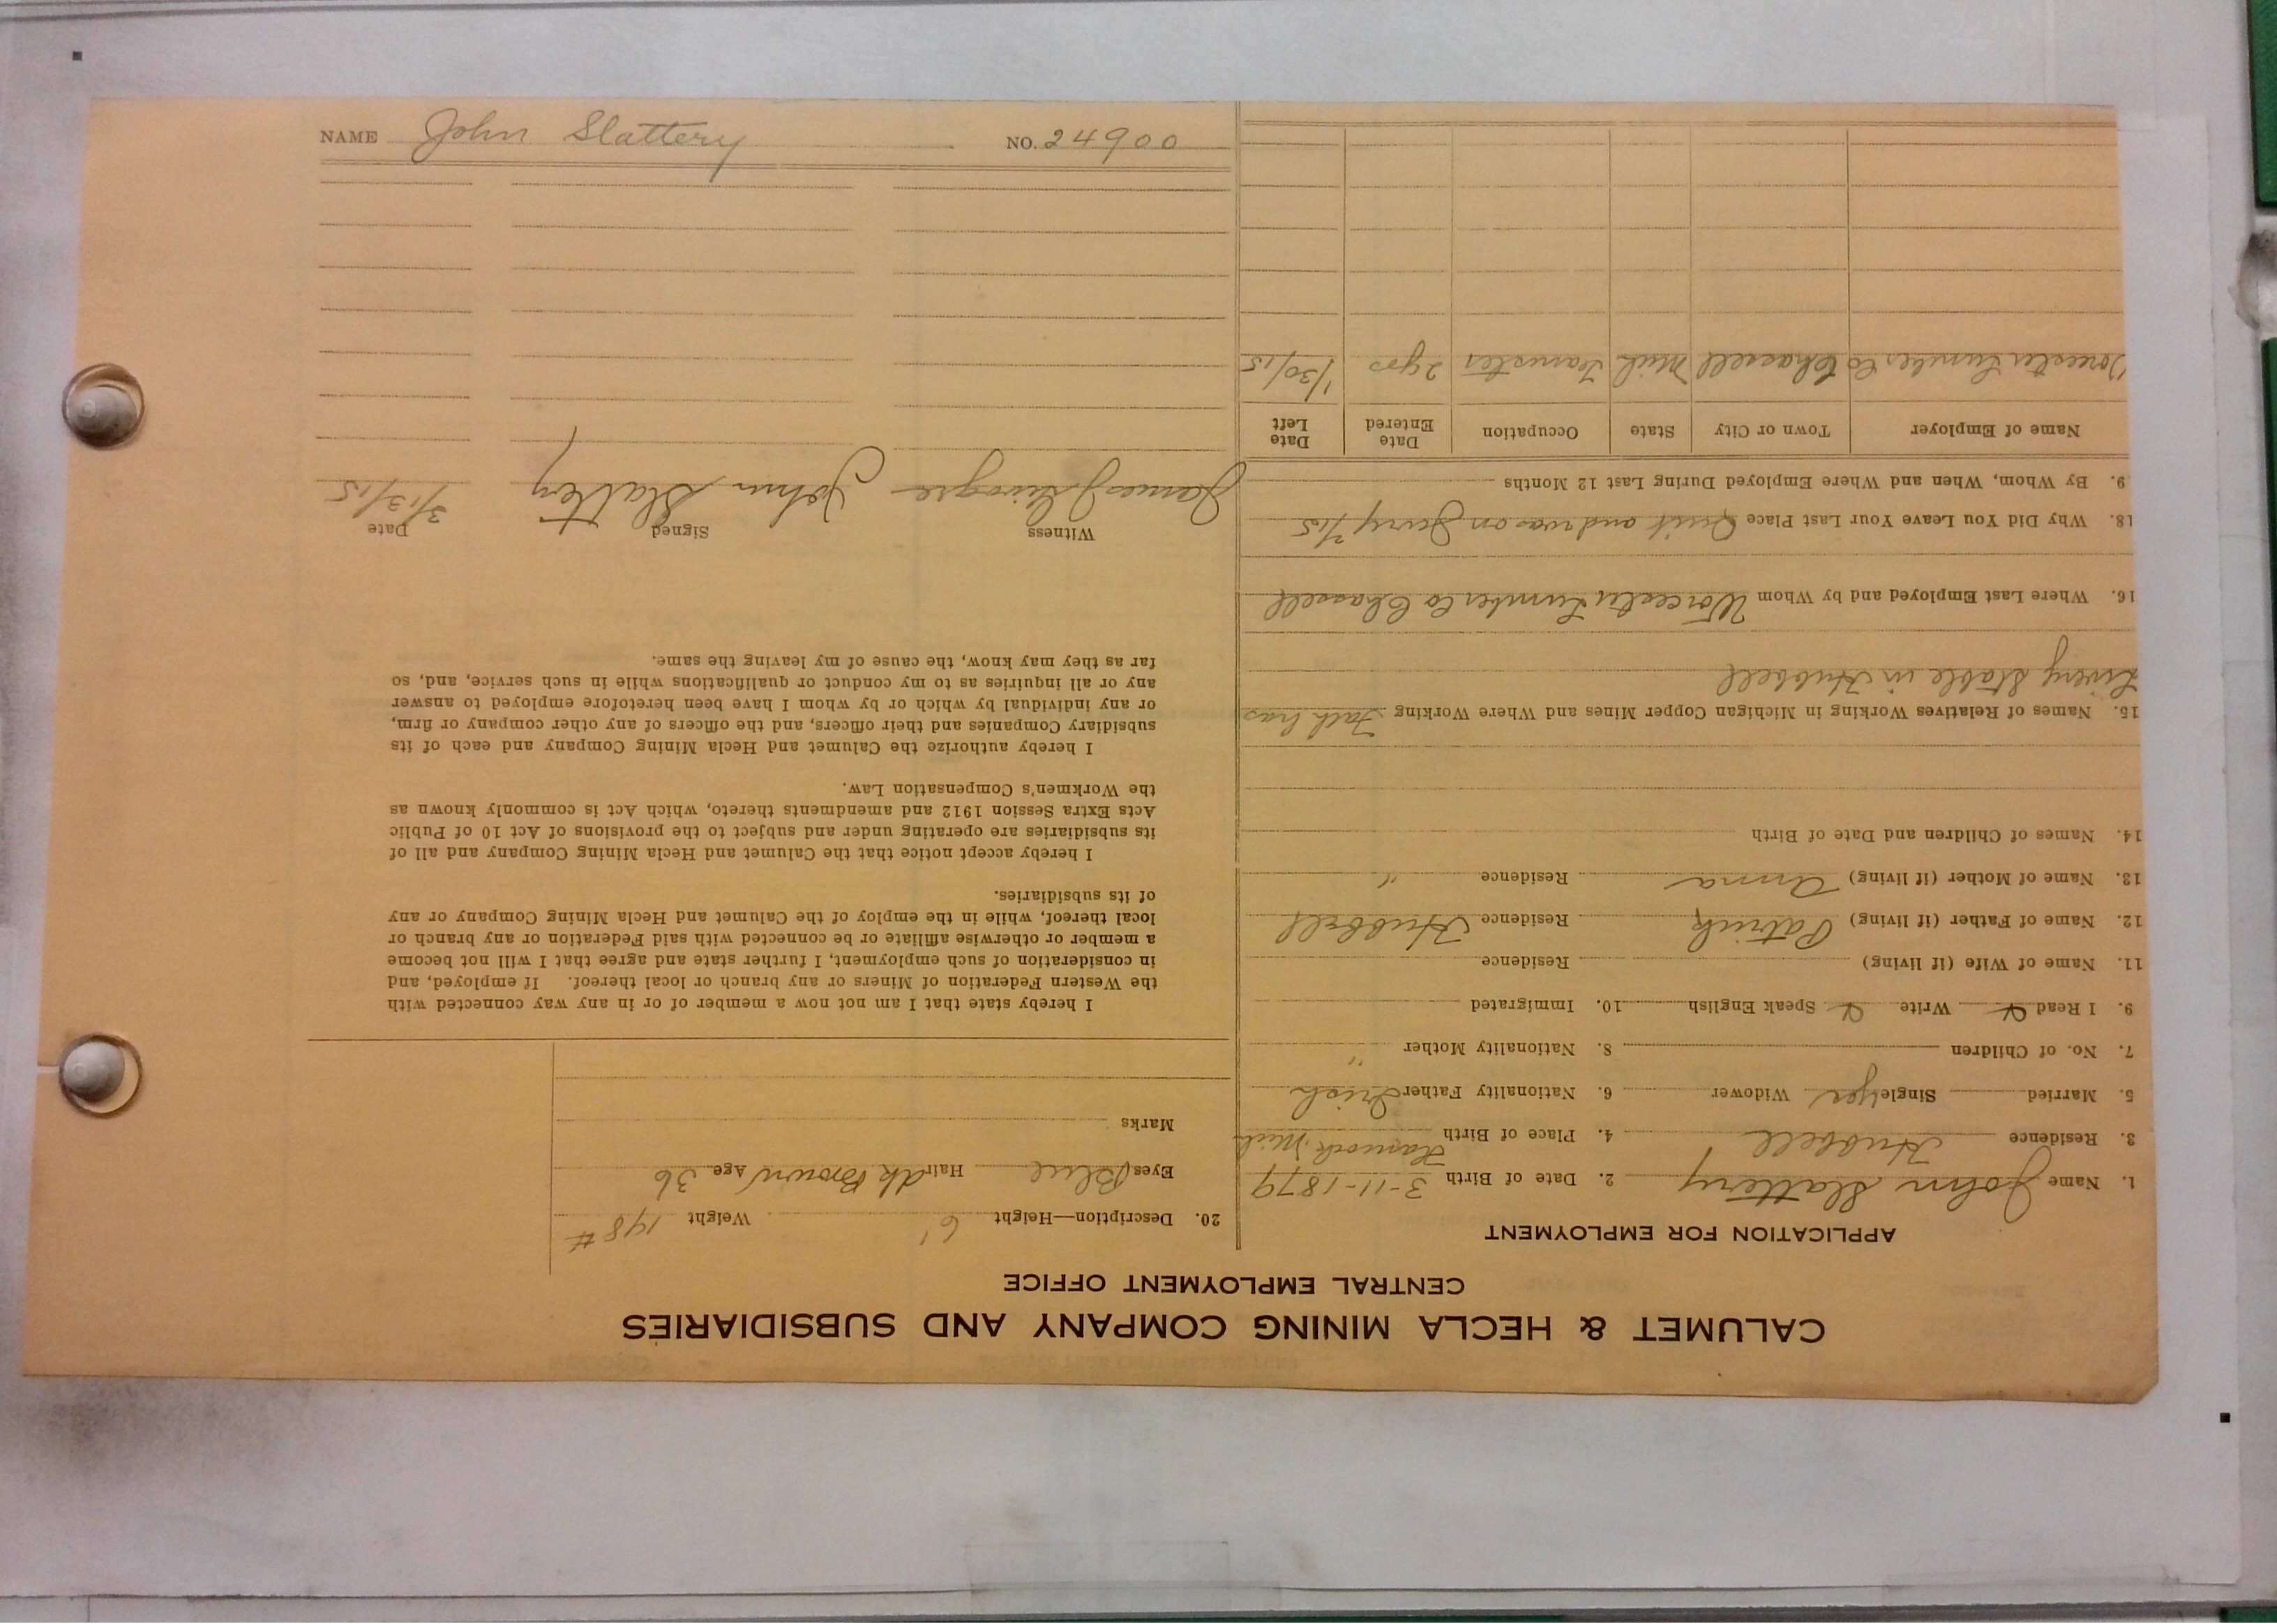 CALUMET & HECLA MINING COMPANY AND SUBSIDIARIES
CENTRAL EMPLOYMENT OFFICE
APPLICATION FOR EMPLOYMENT
1. Name John Slattery 2. Date of Birth 3-11-1879
3. Residence Hubbell 4. Place of Birth Hancock, Mich
5. Married Single yes Widower 6. Nationality Father Irish
7. No. of Children 8. Nationality Mother "
9. I Read Write Speak English 10. Immigrated
11. Name of Wife (if living) Residence
12. Name of Father (if living) Patrick Residence Hubbell
13. Name of Mother (if living) Anna Residence "
14. Names of Children and Date of Birth
15. Names of Relatives Working in Michigan Copper Mines and Where Working Fath has
Livery Stable in Hubbell
16. Where Last Employed and by Whom Worcester Lumber Co Chassell
18. Why Did You Leave Your Last Place Quit and was on Jury 2/15
9. By Whom, When and Where Employed During Last 12 Months
Name of Employer Town or City State Occupation Date Entered Date Left
Worcester Lumber Co Chassell Mich Teamster 2 yrs 1/30/15
20. Description—Height 6' Weight 198 #
Eyes Blue Hair dk Brown Age 36
Marks
I hereby state that I am not now a member of or in any way connected with
the Western Federation of Miners or any branch or local thereof. If employed, and
in consideration of such employment, I further state and agree that I will not become
a member or otherwise affiliate or be connected with said Federation or any branch or
local thereof, while in the employ of the Calumet and Hecla Mining Company or any
of its subsidiaries.
I hereby accept notice that the Calumet and Hecla Mining Company and all of
its subsidiaries are operating under and subject to the provisions of Act 10 of Public
Acts Extra Session 1912 and amendments thereto, which Act is commonly known as
the Workmen's Compensation Law.
I hereby authorize the Calumet and Hecla Mining Company and each of its
subsidiary Companies and their officers, and the officers of any other company or firm,
or any individual by which or by whom I have been heretofore employed to answer
any or all inquiries as to my conduct or qualifications while in such service, and, so
far as they may know, the cause of my leaving the same.
Witness Signed Date
James J John Slattery 3/13/15
NAME John Slattery NO. 24900